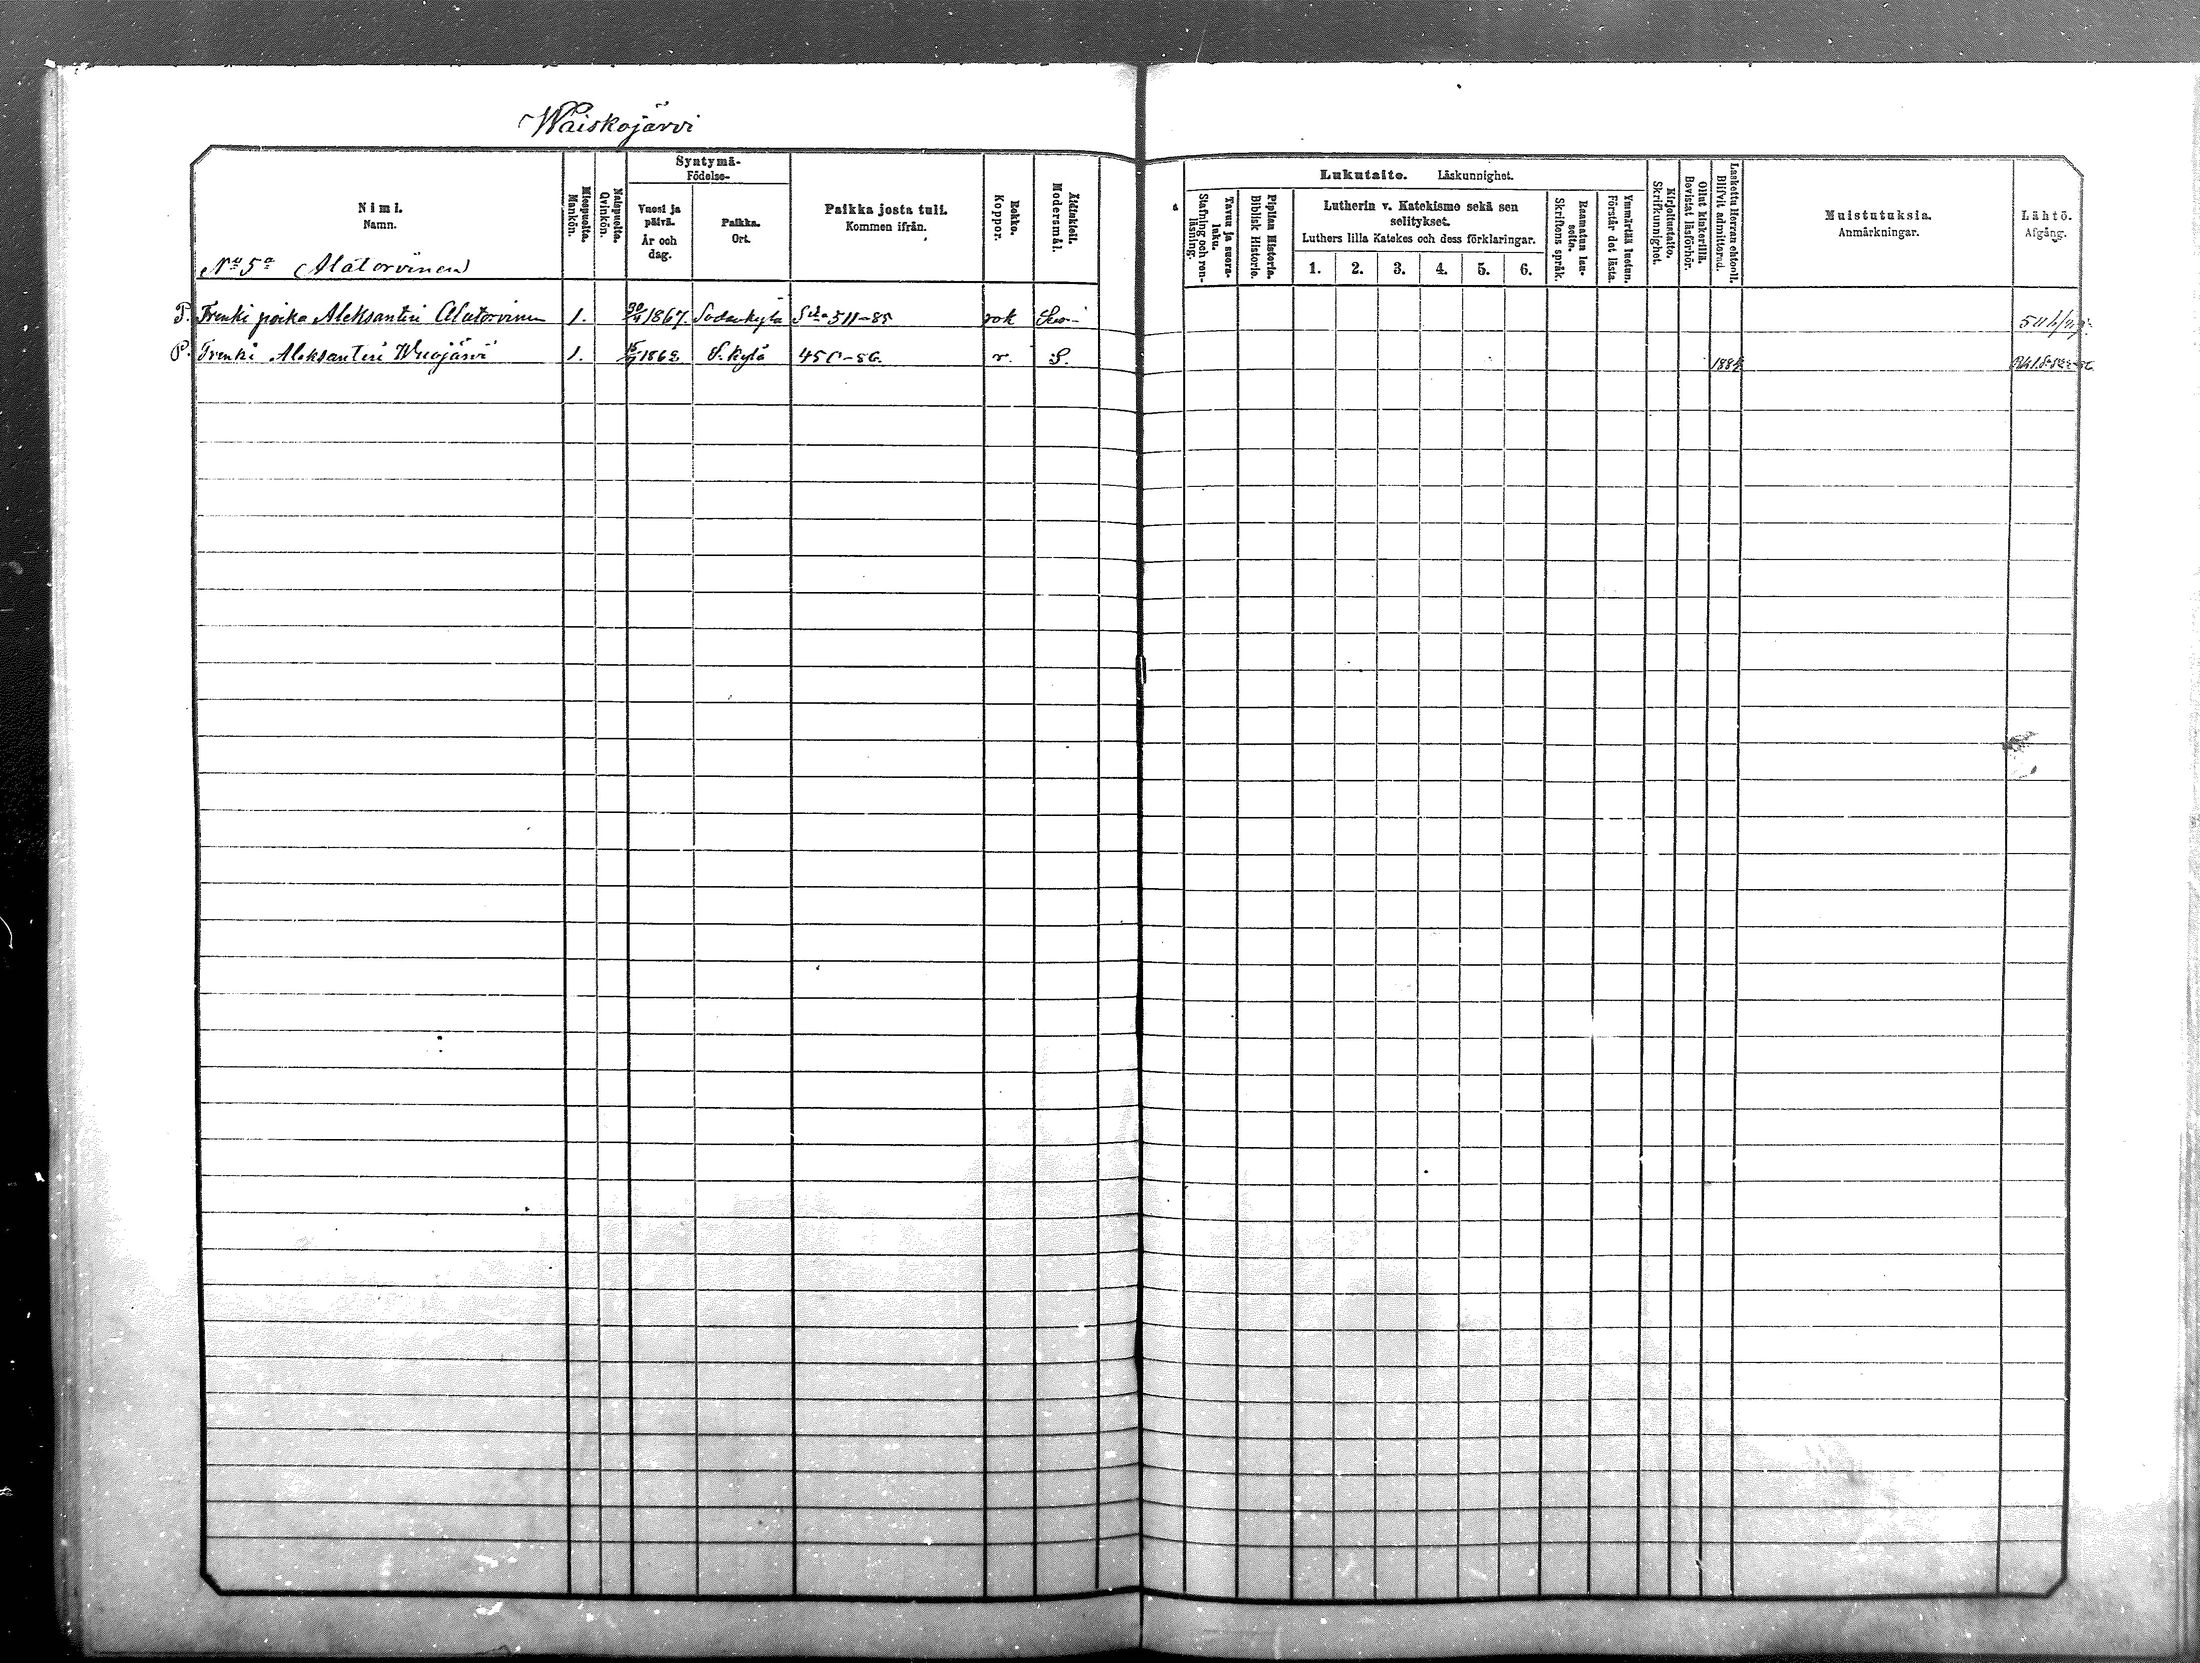 Waiskojärvi
Nimi.
Namn.
Miespuolta.
Mankön.
Naispuolta.
Qvinkön.
Syntymä-
Födelse-
Vuosi ja
päivä.
År och
dag.
Paikka.
Ort.
Paikka josta tuli.
Kommen ifrån.
Rokko.
Koppor.
Äidinkieli.
Modersmål.
Lukutaito. Läskunnighet.
Tavuu ja suora-
luku.
Stafning och ren-
läsning.
Piplian Historia.
Biblisk Historie.
Lutherin v. Katekismo sekä sen
selitykset.
Luthers lilla Katekes och dess förklaringar.
1. 2. 3. 4. 5. 6.
Raamatun lau-
seita.
Skriftens språk.
Ymmärtää luetun.
Förstår det lästa.
Kirjoitustaito.
Skrifkunnighet.
Ollut kinkerillä.
Bevistat läsförhör.
Laskettu Herran ehtooll.
Blifvit admitterad.
Muistutuksia.
Anmärkningar.
Lähtö.
Afgång.
No 5a (Alatorvinen)
Trenki poika Aleksanteri Alatorvinen 1. 1867. Sodankylä 511-85 rok Suo-
P. Trenki Aleksanteri Wuojärvi 1. 1862 S.kylä 450-86. r. S. 1884